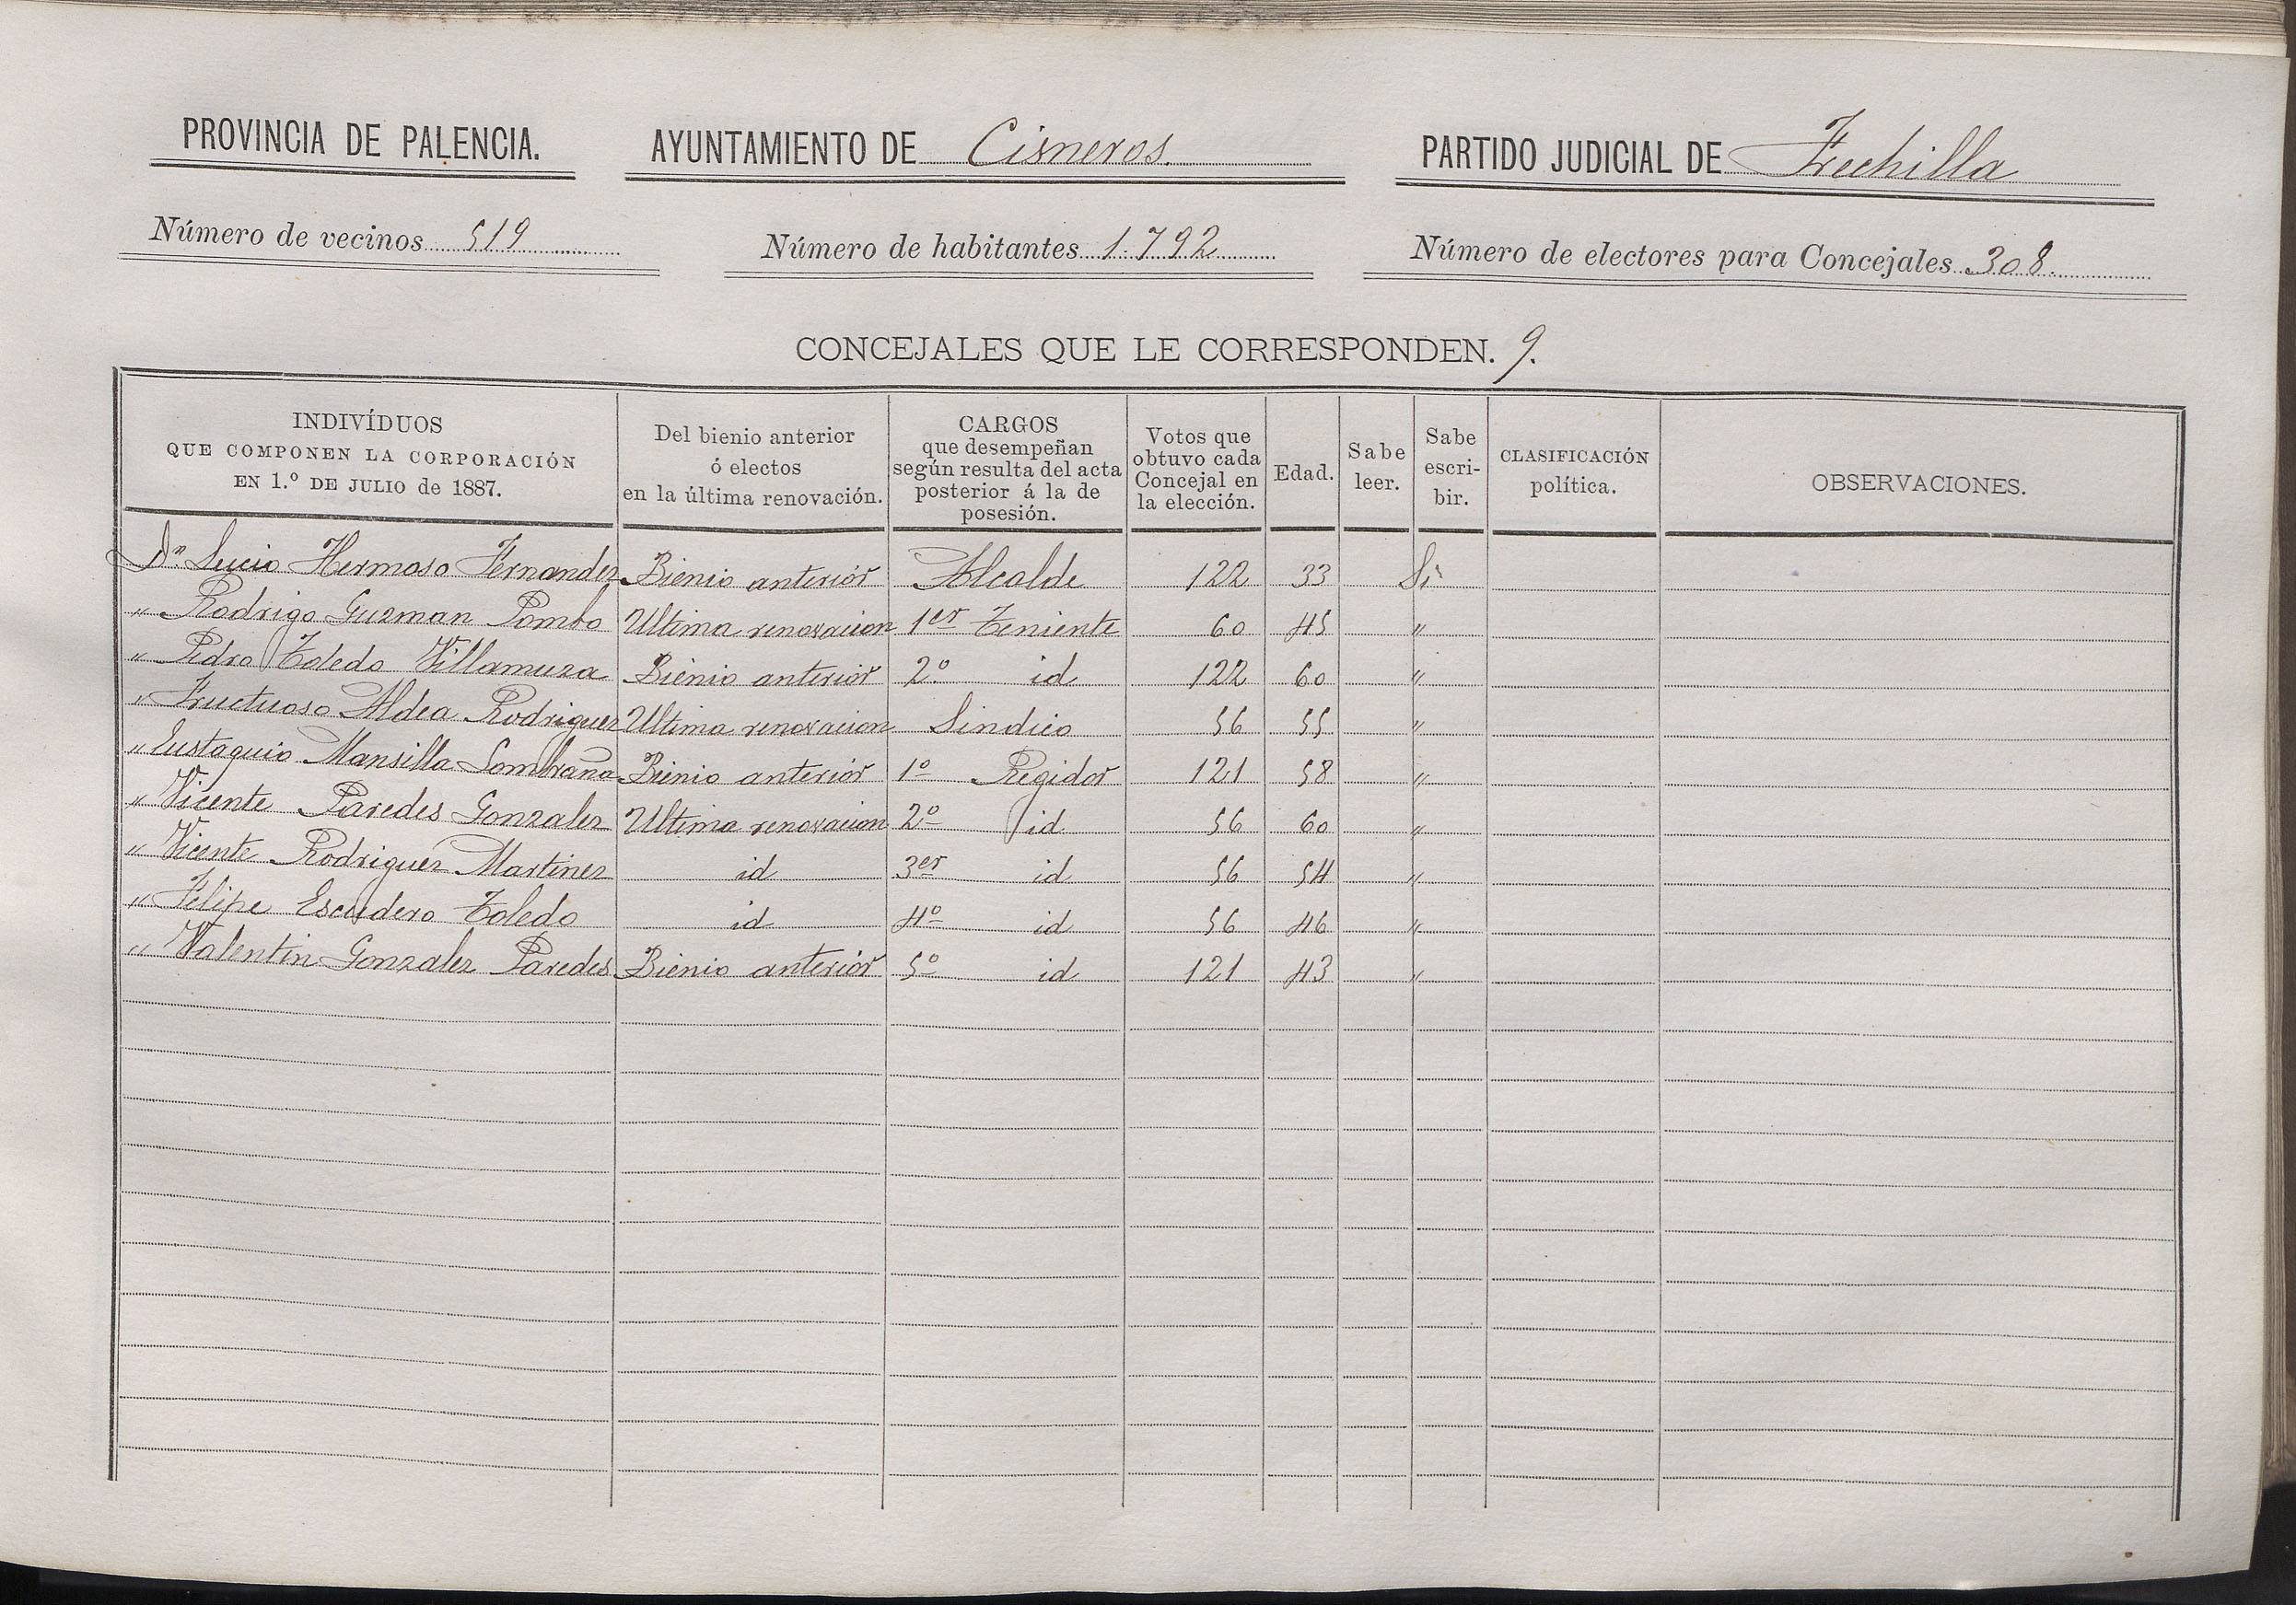 PROVINCIA DE PALENCIA. AYUNTAMIENTO DE Cisneros. PARTIDO JUDICIAL DE Frechilla
Número de vecinos 519 Número de habitantes 1.792 Número de electores para Concejales 308.
CONCEJALES QUE LE CORRESPONDEN. 9.
INDIVÍDUOS QUE COMPONEN LA CORPORACIÓN EN 1.º DE JULIO de 1887. Del bienio anterior ó electos en la última renovación. CARGOS que desempeñan según resulta del acta posterior á la de posesión. Votos que obtuvo cada Concejal en la elección. Edad. Sabe leer. Sabe escri-bir. CLASIFICACIÓN política. OBSERVACIONES.
Dn Lucio Hermoso Fernandez Bienio anterior Alcalde 122 33 Si
" Rodrigo Guzman Pombo Ultima renovacion 1er Teniente 60 45 "
" Pedro Toledo Villamuza Bienio anterior 2º id 122 60 "
" Fructuoso Aldea Rodriguez Ultima renovacion Sindico 56 55 "
" Eustaquio Mansilla Sombraña Bienio anterior 1º Regidor 121 58 "
" Vicente Paredes Gonzalez Ultima renovacion 2º id 56 60 "
" Vicente Rodriguez Martinez id 3er id 56 54 "
" Felipe Escudero Toledo id 4º id 56 46 "
" Valentin Gonzalez Paredes Bienio anterior 5º id 121 43 "